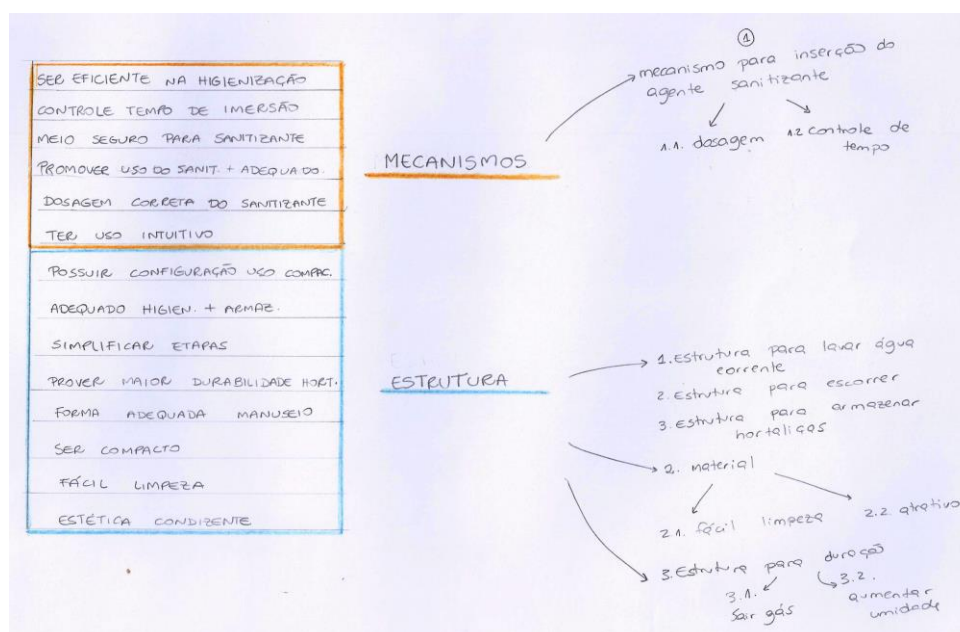 SER EFICIENTE NA HIGIENIZAÇÃO
CONTROLE TEMPO DE IMERSÃO
MEIO SEGURO PARA SANITIZANTE
PROMOVER USO DO SANIT. + ADEQUADO.
DOSAGEM CORRETA DO SANITIZANTE
TER USO INTUITIVO
POSSUIR CONFIGURAÇÃO USO COMPAC.
ADEQUADO HIGIEN. + ARMAZ.
SIMPLIFICAR ETAPAS
PROVER MAIOR DURABILIDADE HORT.
FORMA ADEQUADA MANUSEIO
SER COMPACTO
FÁCIL LIMPEZA
ESTÉTICA CONDIZENTE
MECANISMOS
1
mecanismo para inserção do
agente sanitizante
1.1. dosagem
1.2 controle de
tempo
ESTRUTURA
1. Estrutura para lavar água
corrente
2. Estrutura para escorrer
3. Estrutura para armazenar
hortaliças
2. material
2.1. fácil limpeza
2.2. atrativo
3. Estrutura para duração
3.1.
Sair gás
3.2.
aumentar
umidade